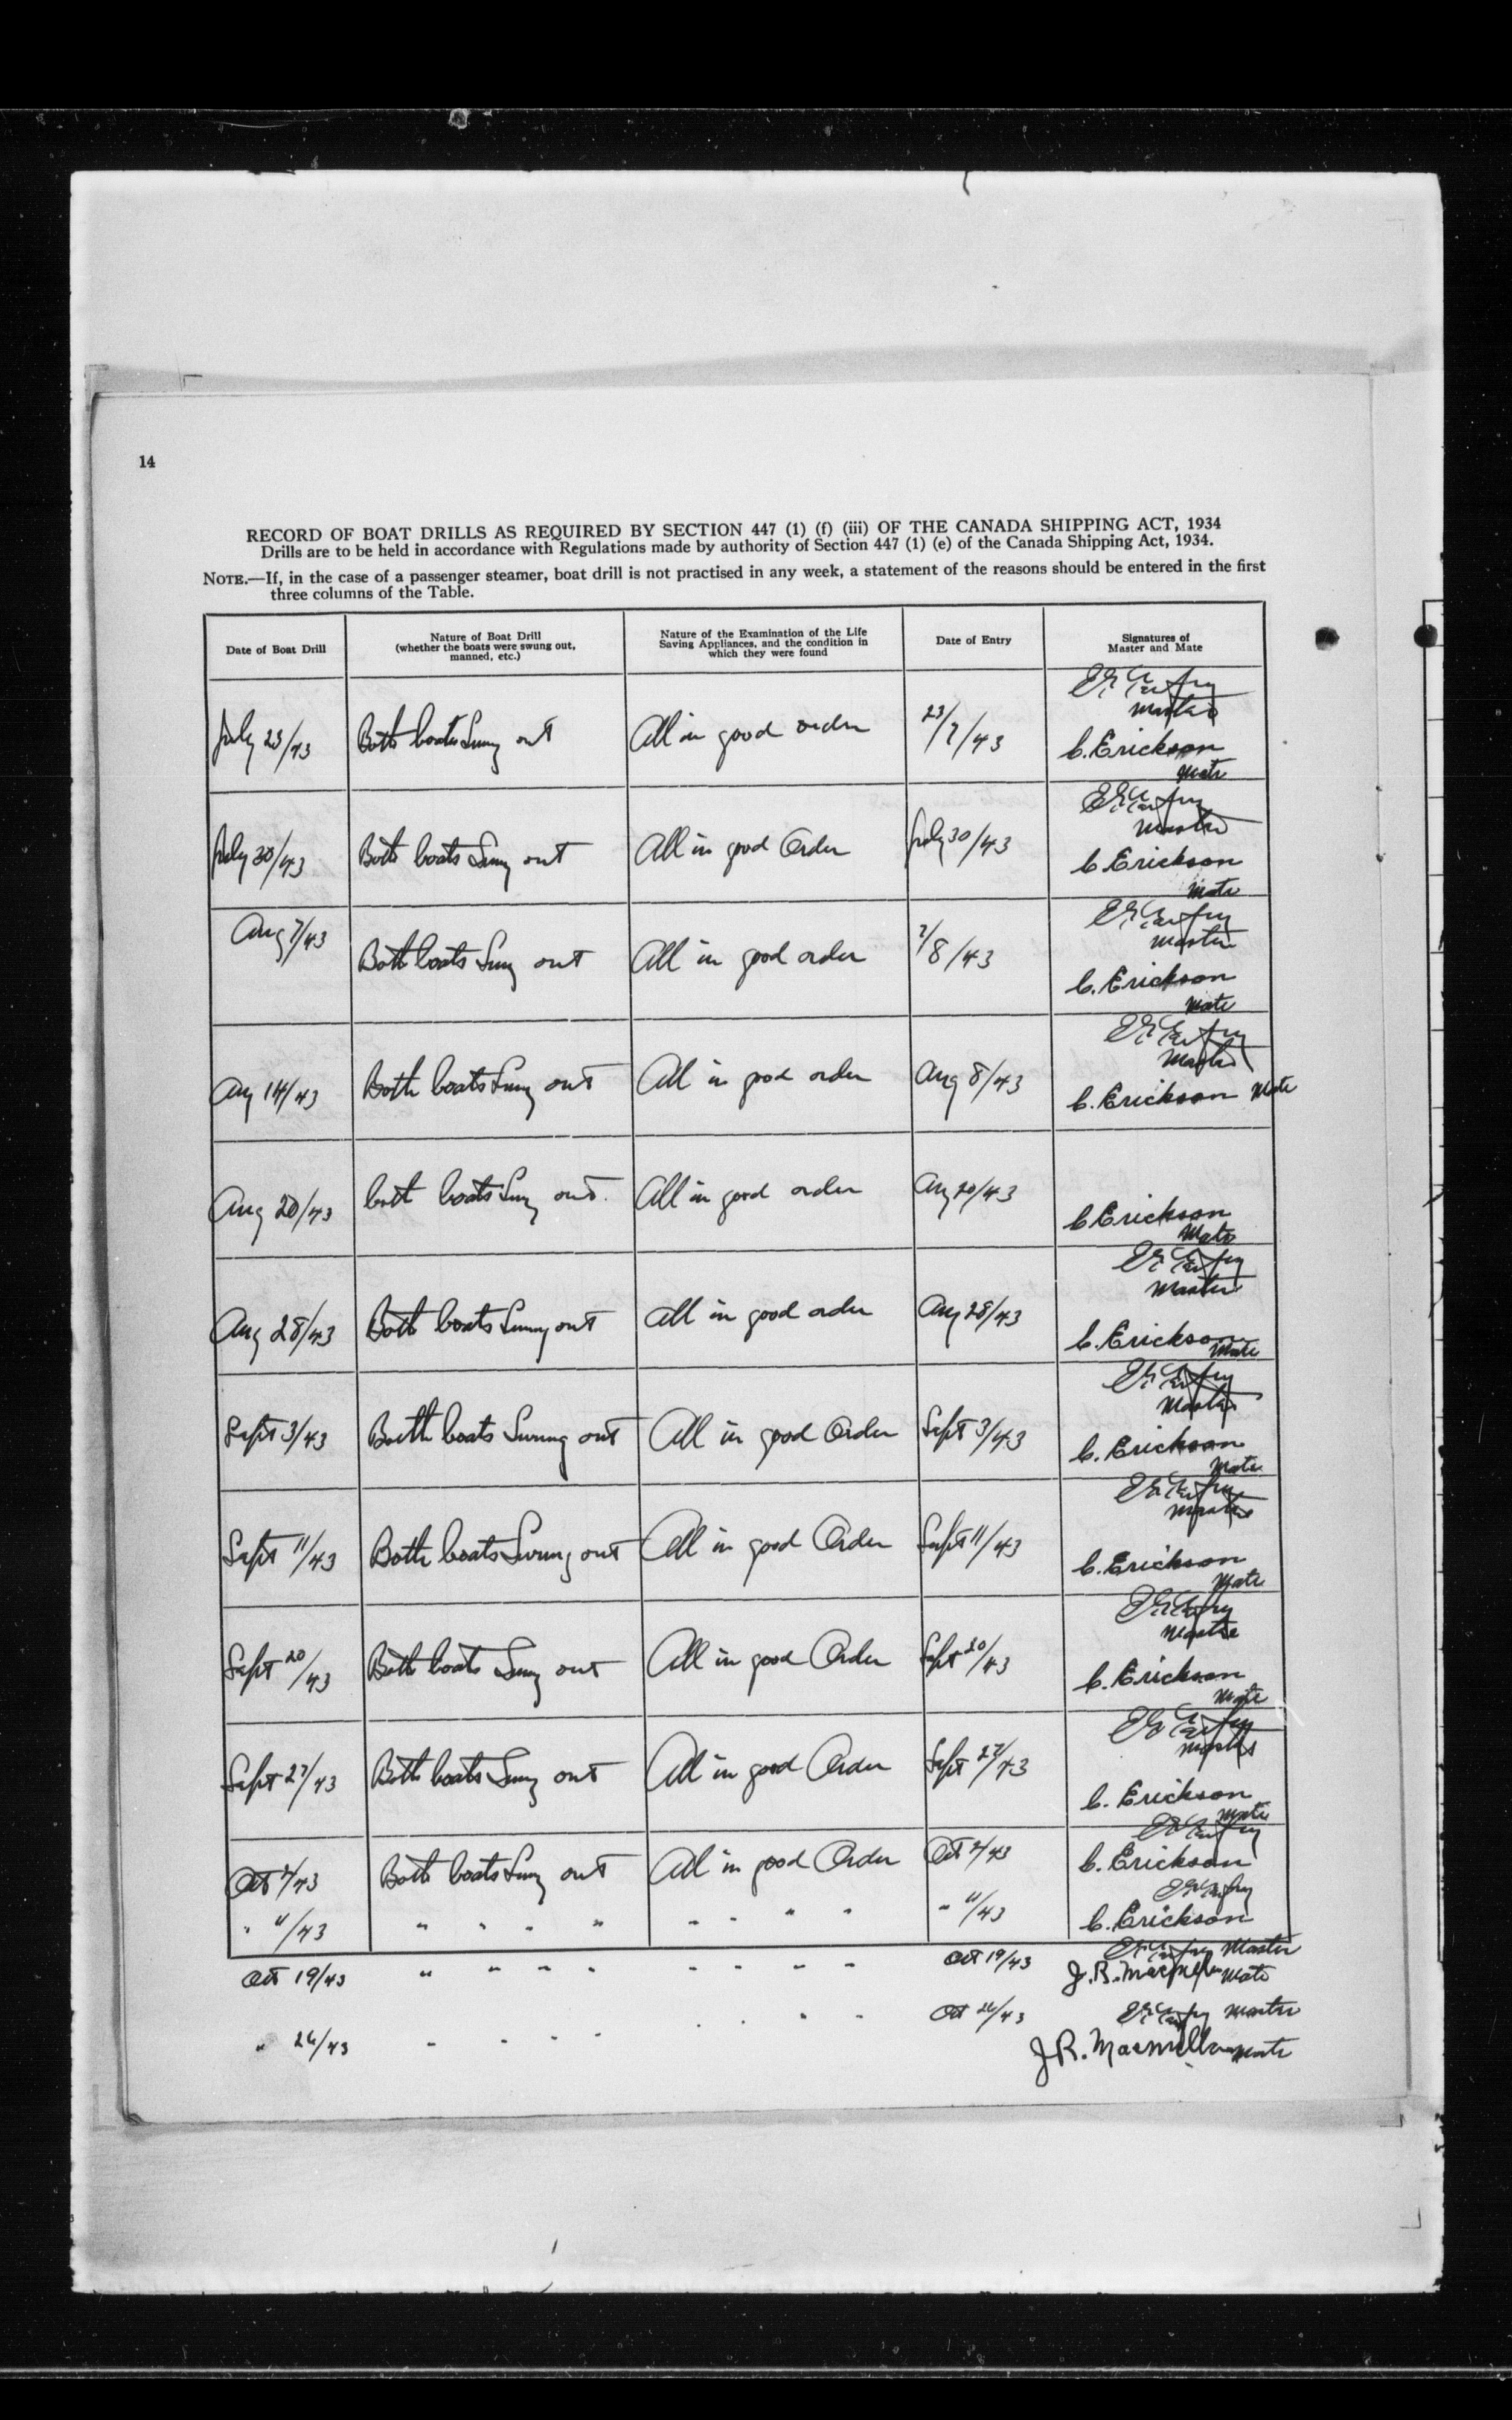 14
RECORD OF BOAT DRILLS AS REQUIRED BY SECTION 447 (1) (f) (iii) OF THE CANADA SHIPPING ACT, 1934
Drills are to be held in accordance with Regulations made by authority of Section 447 (1) (e) of the Canada Shipping Act, 1934.
NOTE.—If, in the case of a passenger steamer, boat drill is not practised in any week, a statement of the reasons should be entered in the first
three columns of the Table.
Date of Boat Drill
Nature of Boat Drill
(whether the boats were swung out,
manned, etc.)
Nature of the Examination of the Life
Saving Appliances, and the condition in
which they were found
Date of Entry
Signatures of
Master and Mate
July 23/43 Both boats Swung out All in good order 23/7/43
Master
C. Erickson
Mate
July 30/43 Both boats Swung out All in good Order July 30/43
Master
C Erickson
Mate
Aug 7/43 Both boats Swung out All in good order 7/8/43
Master
C. Erickson
Mate
Aug 14/43 Both boats Swung out All in good order Aug 8/43
Master
C. Erickson Mate
Aug 20/43 both boats Swung out. All in good order Aug 20/43
C Erickson
Mate
Aug 28/43 Both boats Swung out All in good order Aug 28/43
Master
C. Erickson
Mate
Sept 3/43 Both boats Swung out All in good Order Sept 3/43
Master
C. Erickson
Mate
Sept 11/43 Both boats Swung out All in good Order Sept 11/43
Master
C. Erickson
Mate
Sept 20/43 Both boats Swung out All in good Order Sept 20/43
Master
C. Erickson
Mate
Sept 27/43 Both boats Swung out All in good Order Sept 27/43
Master
C. Erickson
Mate
Oct /43 Both boats Swung out All in good Order Oct /43
C. Erickson
" 11/43 " " " " " " " " " 11/43
C. Erickson
Oct 19/43 " " " " " " " " Oct 19/43 Master
J.R. Macmillan Mate
" 26/43 " " " " " " " " Oct 26/43 Master
J.R. Macmillan Mate